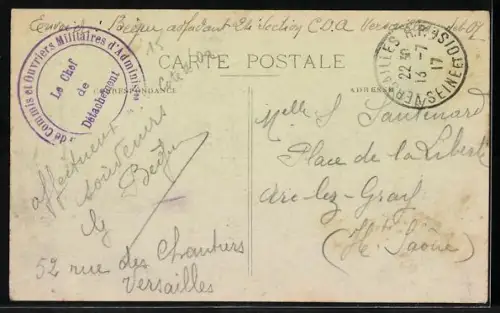 Envoi de Becque adjudant 24e Section C.O.A Versailles
CARTE POSTALE
CORRESPONDANCE
ADRESSE
de Commis et Ouvriers Militaires d'Administ
Le Chef
de
Détachement
VERSAILLES R.P.
22 45
13 -7
17
SEINE ET OISE
affectueux
souvenirs
52 rue des Chantiers
Versailles
Melle S Santenard
Place de la Liberté
Arc-lez-Gray
(Hte Saône)